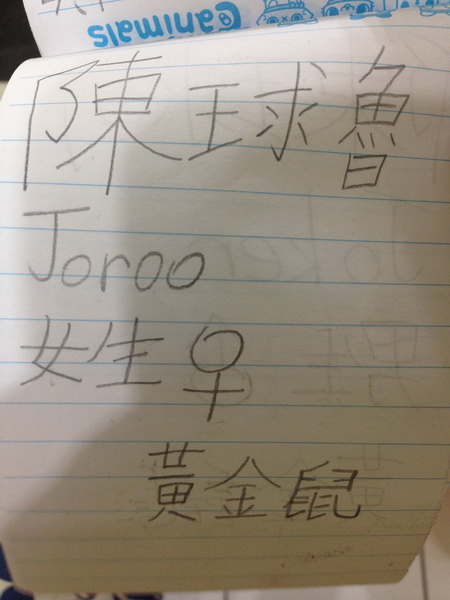 Canimals
陳球魯
Joroo
女生♀
黃金鼠